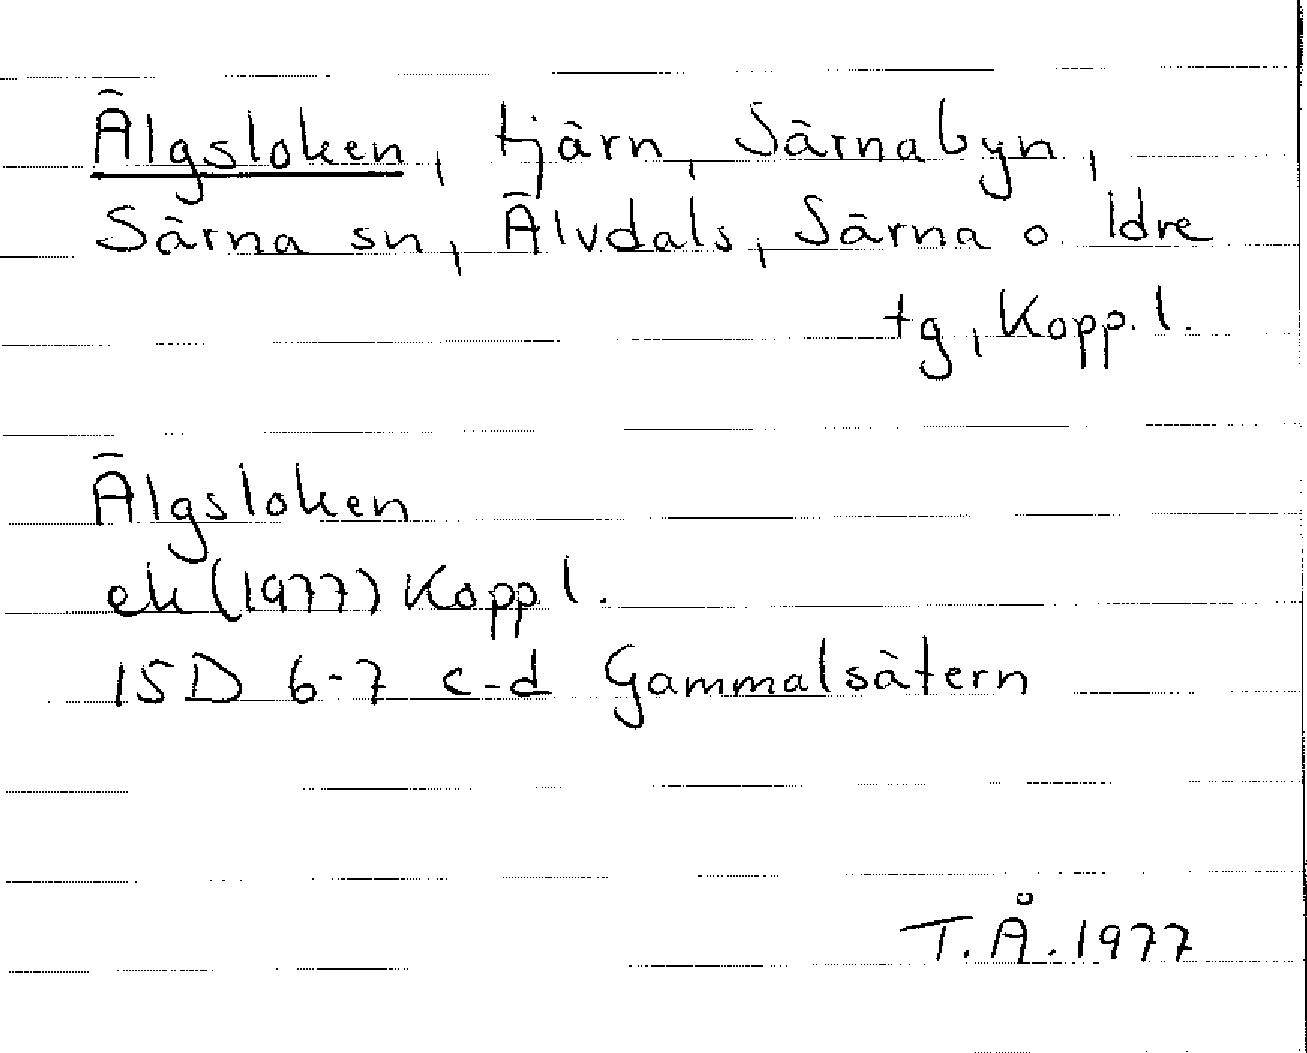 Älgsloken, tjärn, Särnabyn,
Särna sn, Älvdals, Särna o. Idre
tg, Kopp. l.
Älgsloken
ek (1977) Kopp l.
15D 6-7 c-d Gammalsätern
T.Å. 1977